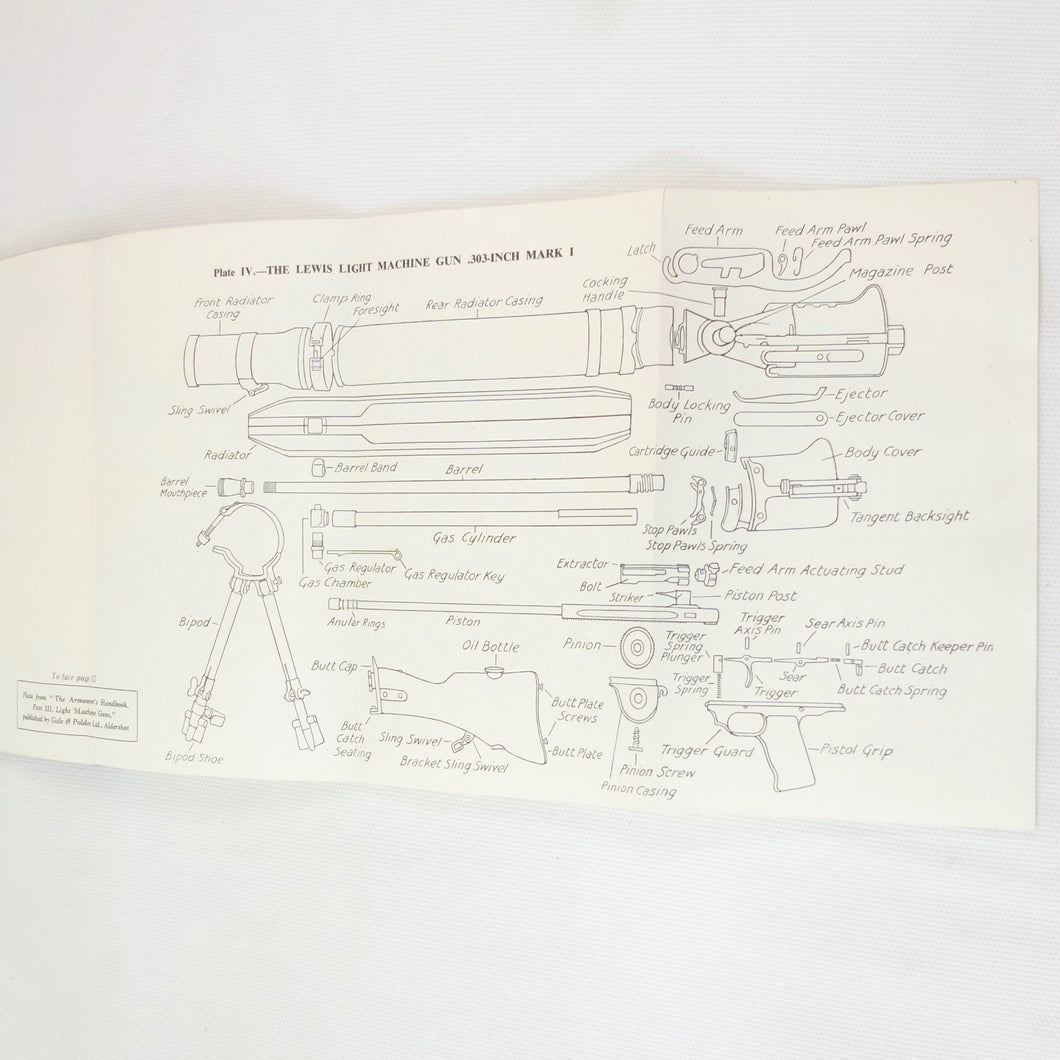 Plate IV.—THE LEWIS LIGHT MACHINE GUN .303-INCH MARK I
Feed Arm
Feed Arm Pawl
Feed Arm Pawl Spring
Latch
Magazine Post
Cocking
Handle
Front Radiator
Casing
Clamp Ring
Foresight
Rear Radiator Casing
Sling Swivel
Body Locking
Pin
Ejector
Ejector Cover
Radiator
Cartridge Guide
Body Cover
Barrel Band
Barrel
Barrel
Mouthpiece
Tangent Backsight
Stop Pawls
Stop Pawls Spring
Gas Cylinder
Gas Regulator
Gas Regulator Key
Gas Chamber
Extractor
Bolt
Feed Arm Actuating Stud
Striker
Piston Post
Bipod
Anular Rings
Piston
Pinion
Trigger
Spring
Plunger
Trigger
Axis Pin
Sear Axis Pin
Butt Catch Keeper Pin
Butt Catch
Sear
Butt Catch Spring
Trigger
Trigger
Spring
Butt Cap
Oil Bottle
Butt Plate
Screws
Butt
Catch
Seating
Sling Swivel
Bracket Sling Swivel
Butt Plate
Trigger Guard
Pistol Grip
Pinion Screw
Pinion Casing
Bipod Shoe
To face page
Plate from "The Armourer's Handbook,
Part III, Light Machine Guns,"
published by Gale & Polden Ltd., Aldershot